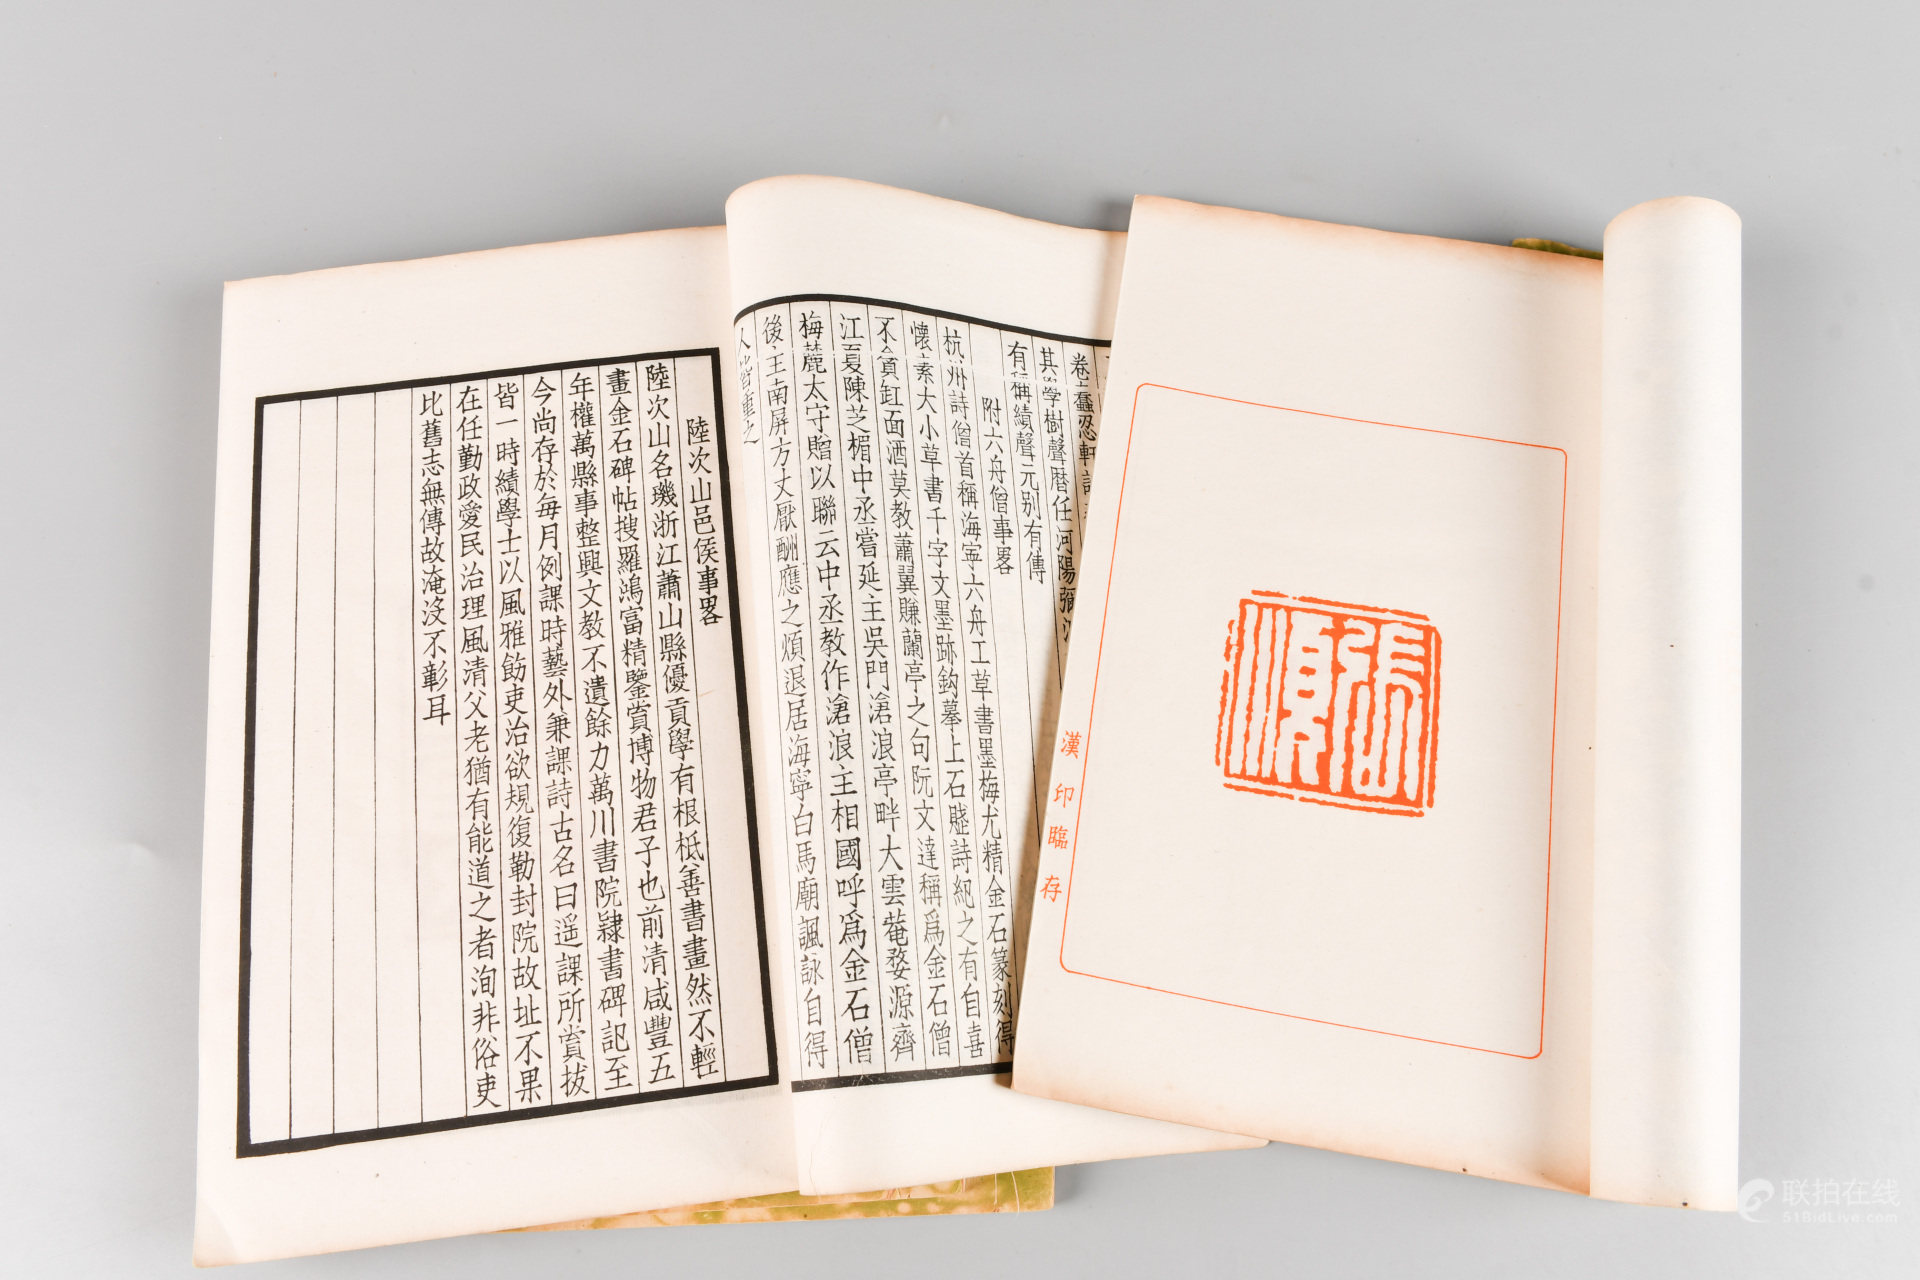 漢印臨存
張順
有稱績聲元别有傳
附六舟僧事畧
杭州詩僧首稱海寧六舟工草書墨梅尤精金石篆刻得
懷素大小草書千字文墨跡鈎摹上石賤詩紀之有自喜
不貪缸面酒莫教蕭翼賺蘭亭之句阮文達稱爲金石僧
江夏陳芝楣中丞嘗延主吳門滄浪亭畔大雲菴婺源齊
梅麓太守贈以聯云中丞教作滄浪主相國呼爲金石僧
後主南屏方丈厭酬應之煩退居海寧白馬廟諷詠自得
人皆重之
陸次山邑侯事畧
陸次山名璣浙江蕭山縣優貢學有根柢善書畫然不輕
畫金石碑帖搜羅鴻富精鑒賞博物君子也前清咸豐五
年權萬縣事整興文教不遺餘力萬川書院隸書碑記至
今尚存於每月例課時藝外兼課詩古名曰遥課所賞拔
皆一時績學士以風雅飭吏治欲規復勒封院故址不果
在任勤政愛民治理風清父老猶有能道之者洵非俗吏
比舊志無傳故淹沒不彰耳
联拍在线
51BidLive.com